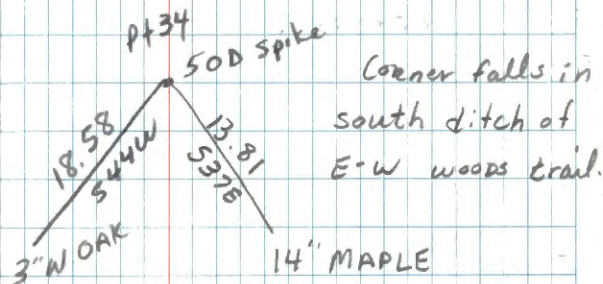 Pt 34
50D Spike
Corner falls in
south ditch of
E-W woods trail.
18.58
S44W
13.81
S37E
3" W OAK
14" MAPLE